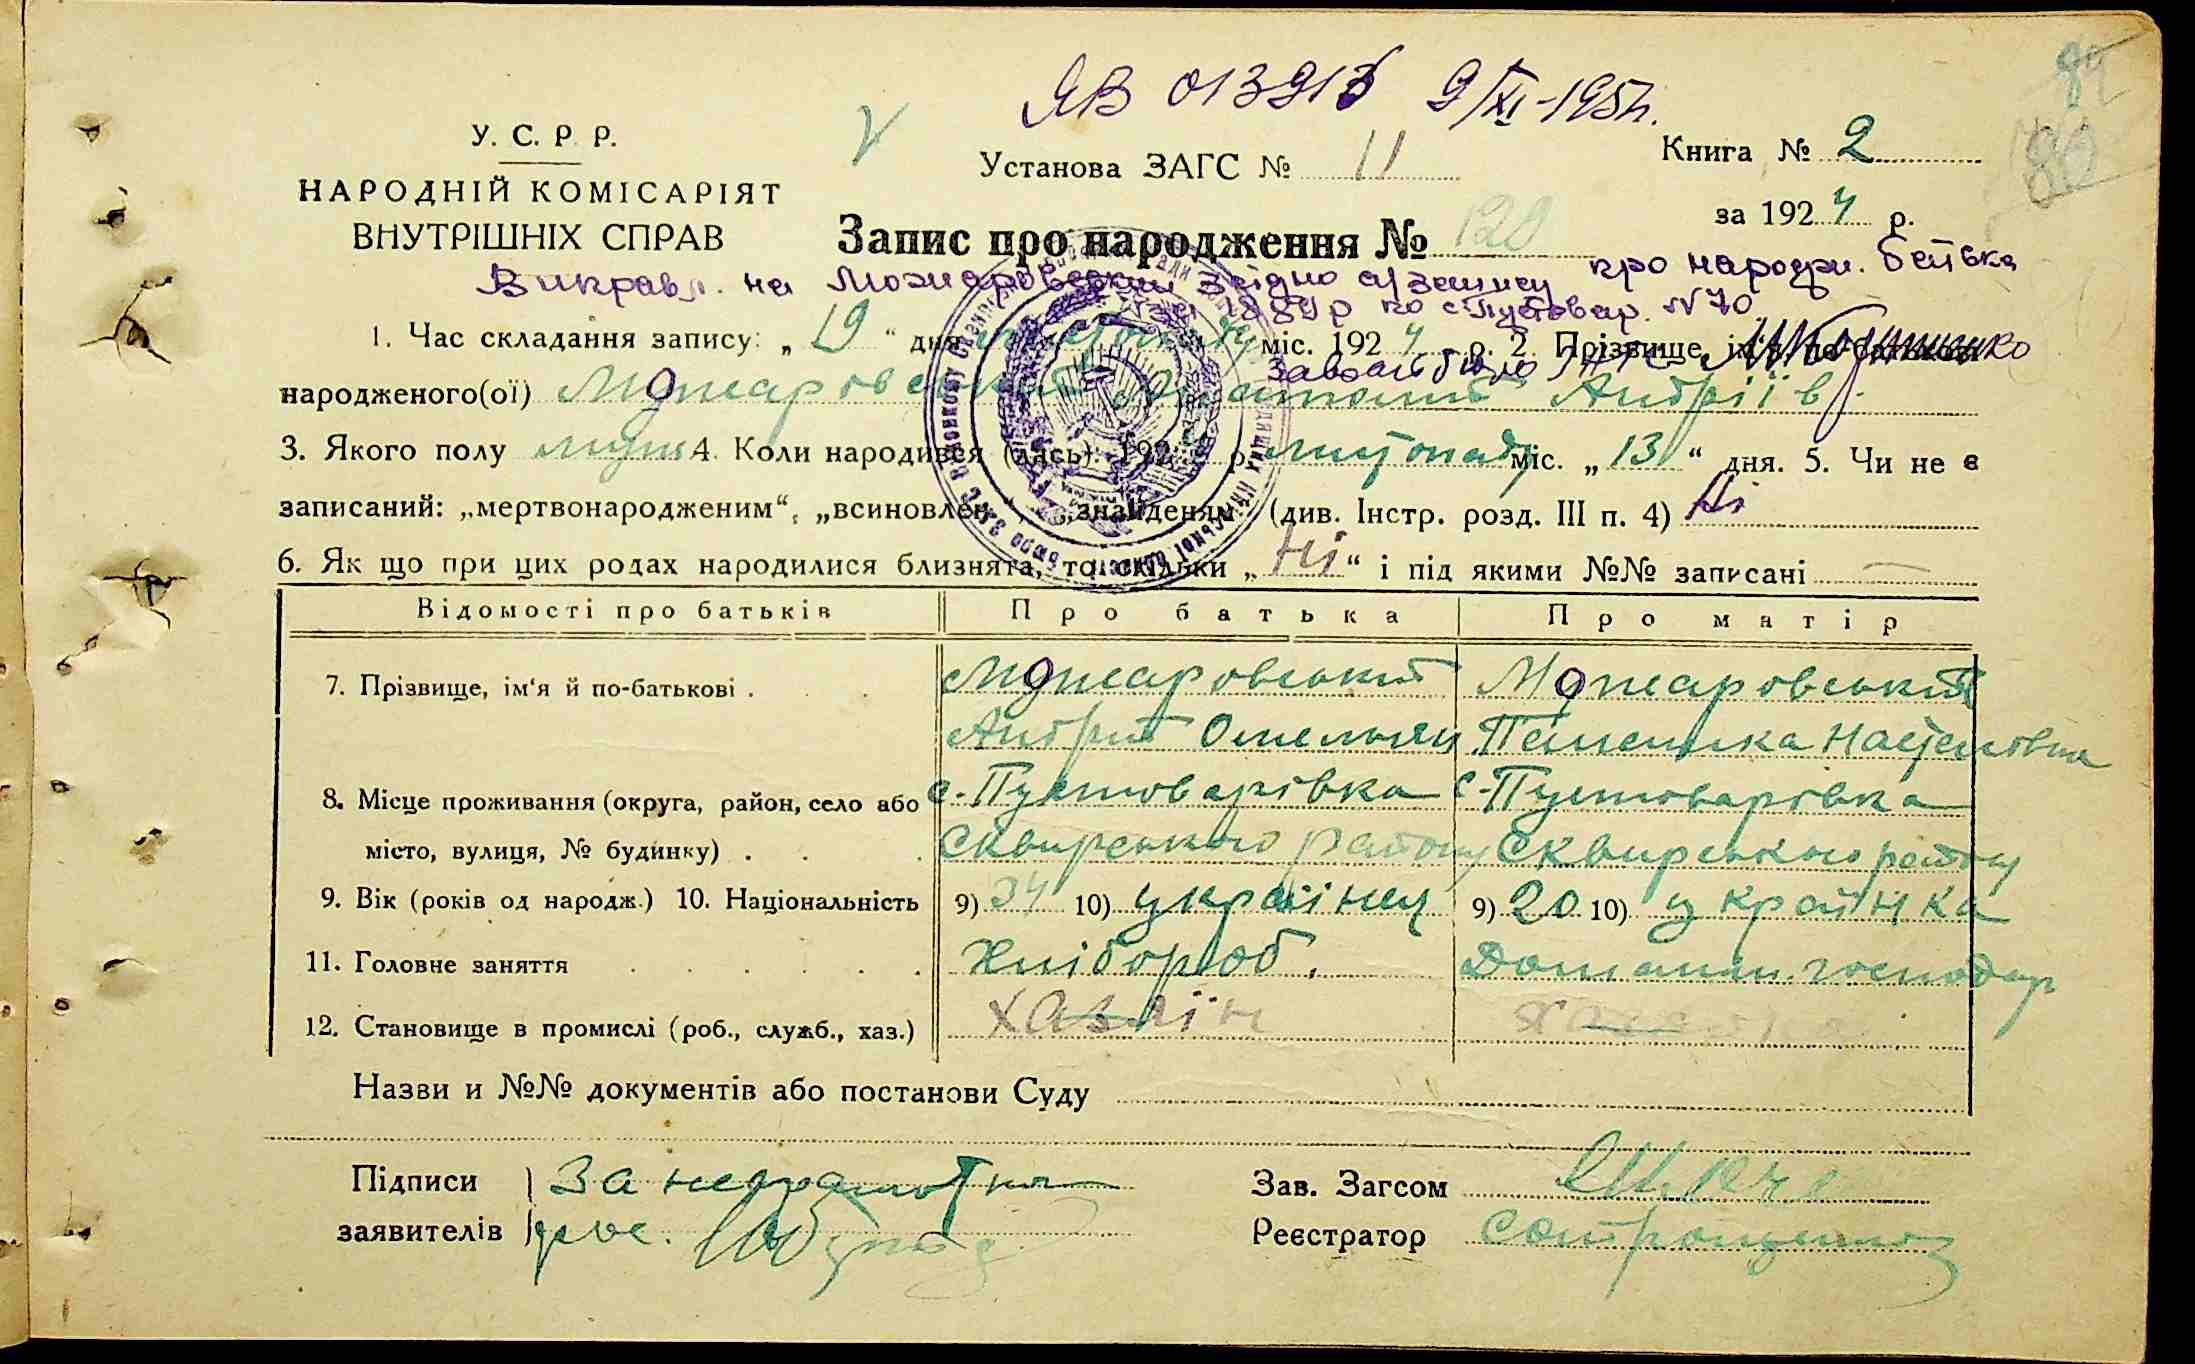 ЯВ 013913 9/XI-1957.
У. С. Р. Р.
НАРОДНІЙ КОМІСАРІЯТ
ВНУТРІШНІХ СПРАВ
Установа ЗАГС № 11
Книга № 2
за 1924 р.
Запис про народження № 120
Виправл. на Можаровский згідно а/запису про народж. батька
1884 р по с. Пустовар. № 70
1. Час складання запису: „19“ дня міс. 1924 р. 2. Прізвище, ім'я, по-батькові
народженого(ої) Можаровський Анатолій Андріїв
3. Якого полу муж 4. Коли народився (лась): 192 р. листопаду міс. „13“ дня. 5. Чи не є
записаний: „мертвонародженим“, „всиновлен „знайденям“ (див. Інстр. розд. III п. 4) Ні
6. Як що при цих родах народилися близнята, то скільки „Ні“ і під якими №№ записані —
Відомості про батьків Про батька Про матір
7. Прізвище, ім'я й по-батькові . Можаровський Можаровський
Андрій Омельян
8. Місце проживання (округа, район, село або с. Пустоварівка с. Пустоварівка
місто, вулиця, № будинку) . Сквирського району Сквирського району
9. Вік (років од народж.) 10. Національність 9) 34 10) українец 9) 20 10) українка
11. Головне заняття Хлібороб. Домашн. господар
12. Становище в промислі (роб., служб., хаз.) хазяїн
Назви и №№ документів або постанови Суду
Підписи За неграмотних
заявителів
Зав. Загсом
Реєстратор